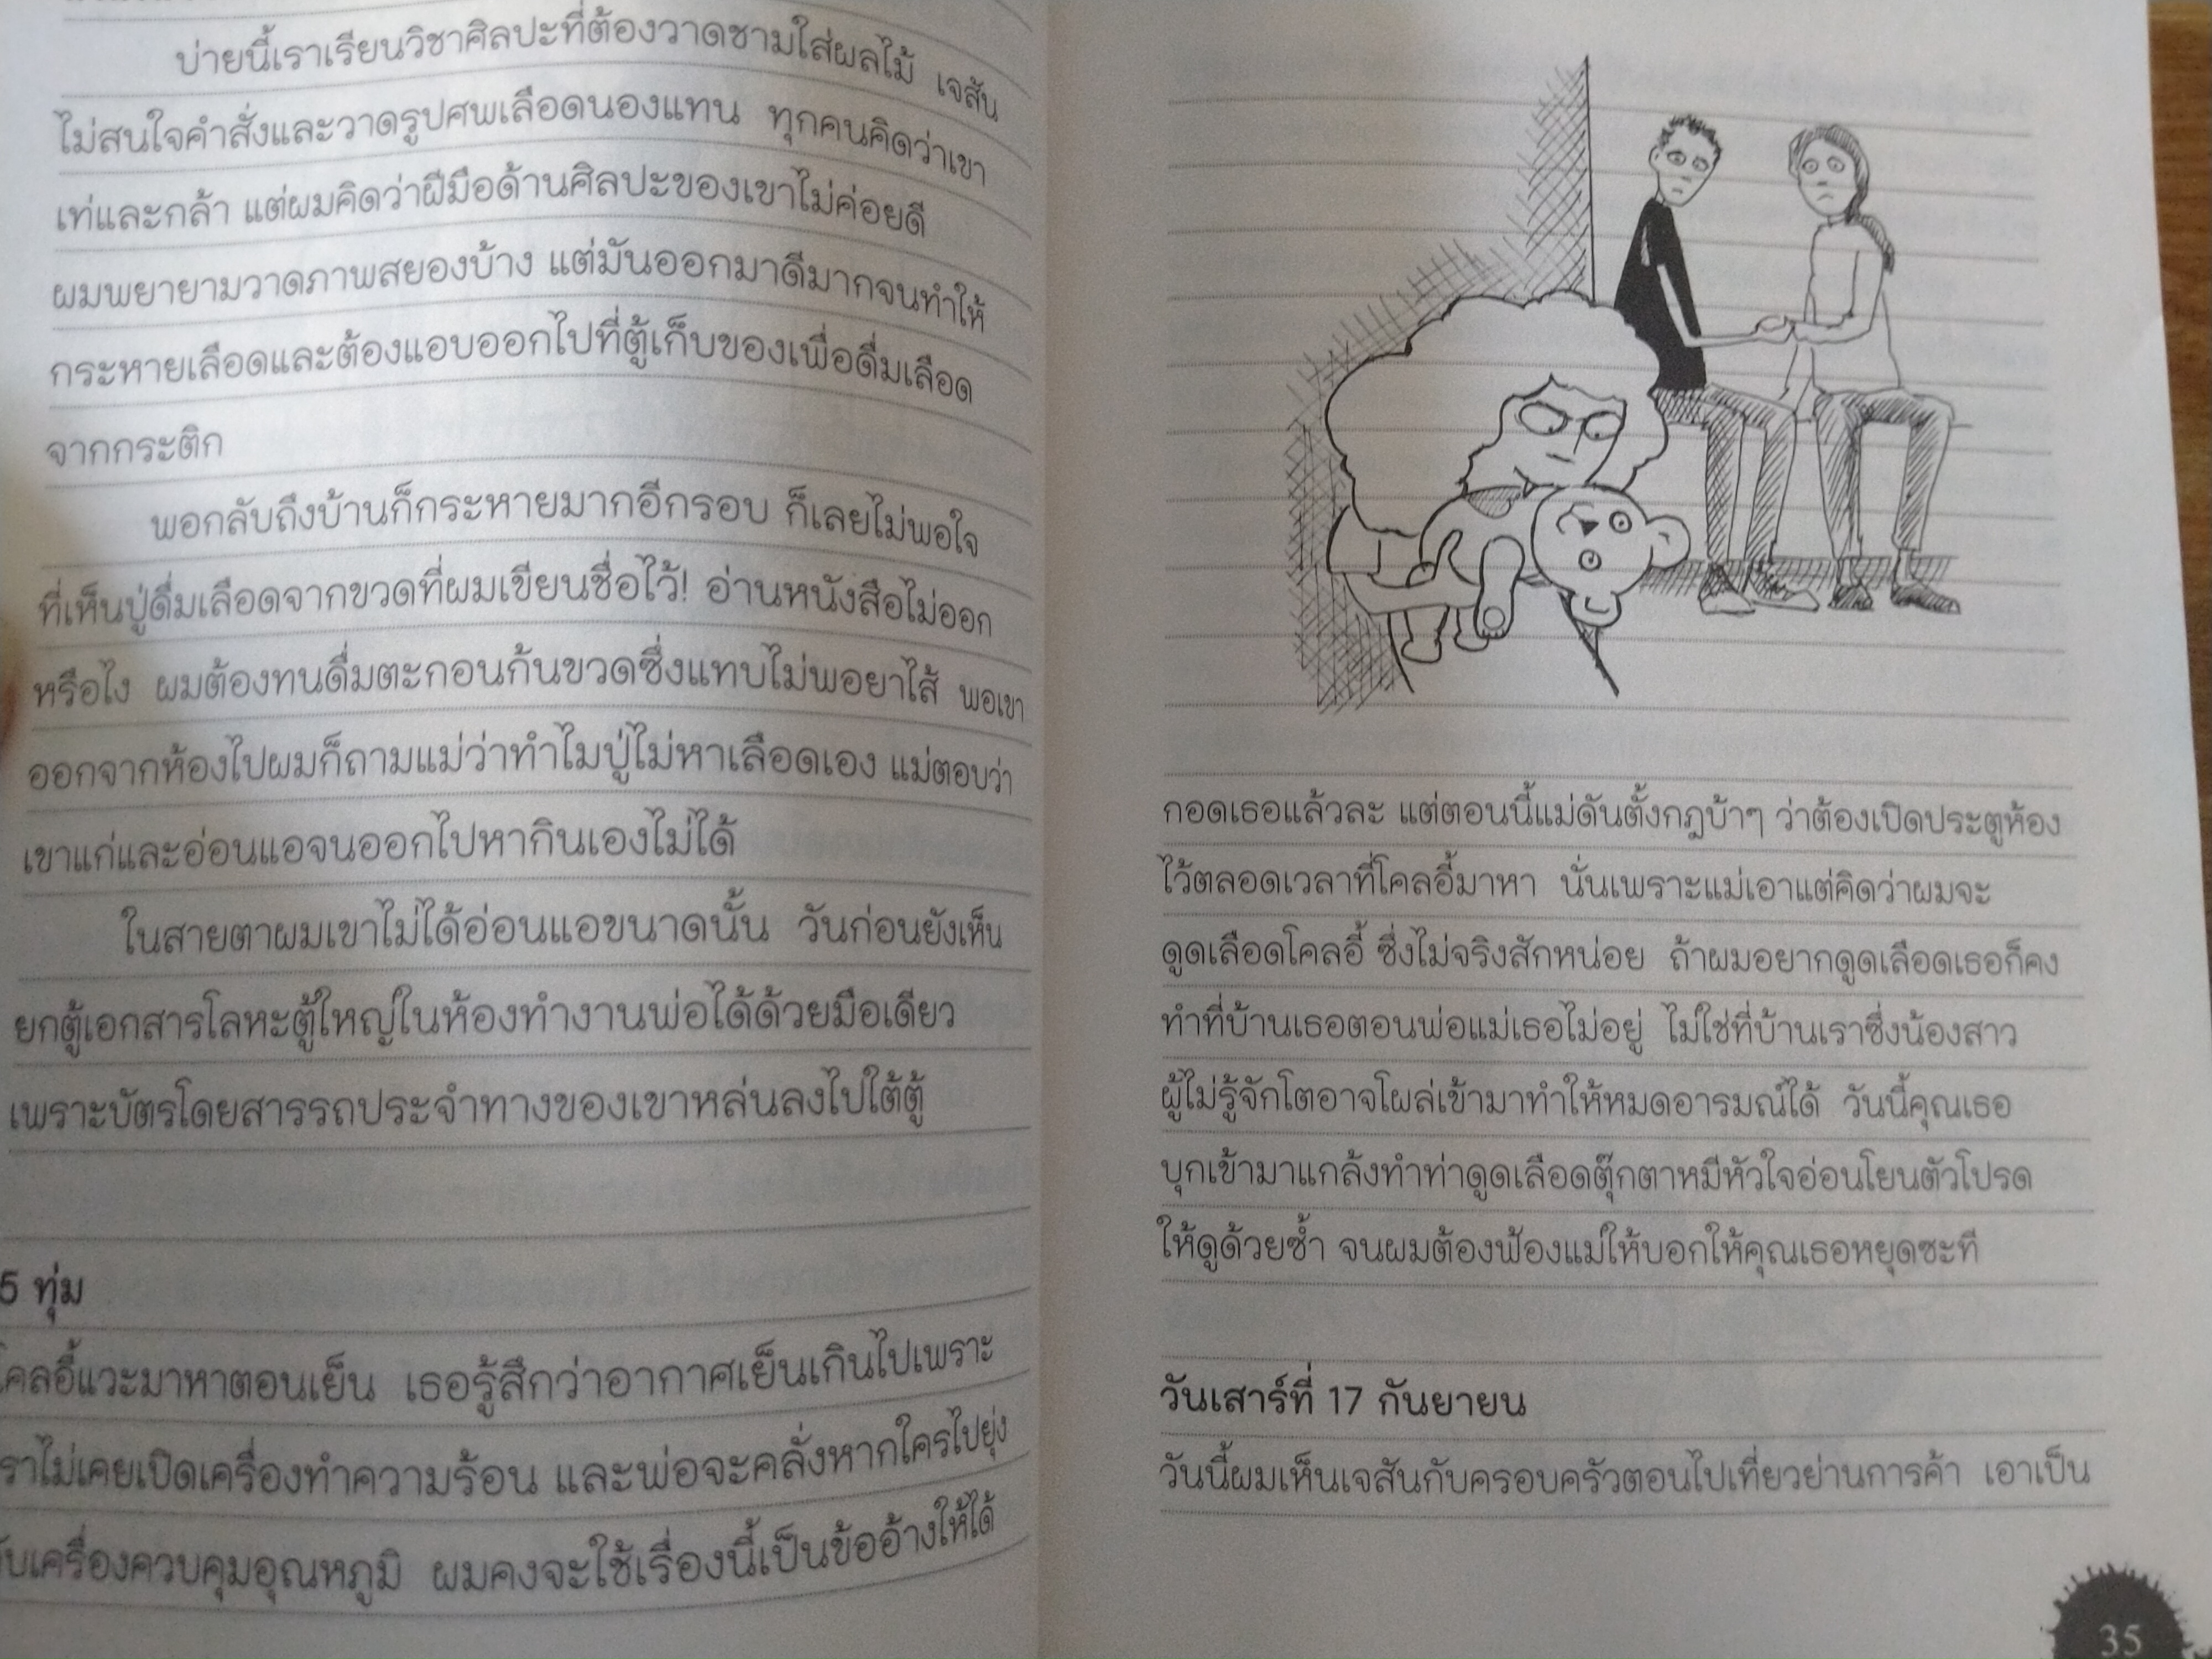 บ่ายนี้เราเรียนวิชาศิลปะที่ต้องวาดชามใส่ผลไม้ เจสัน
ไม่สนใจคำสั่งและวาดรูปศพเลือดนองแทน ทุกคนคิดว่าเขา
เท่และกล้า แต่ผมคิดว่าฝีมือด้านศิลปะของเขาไม่ค่อยดี
ผมพยายามวาดภาพสยองบ้าง แต่มันออกมาดีมากจนทำให้
กระหายเลือดและต้องแอบออกไปที่ตู้เก็บของเพื่อดื่มเลือด
จากกระติก
พอกลับถึงบ้านก็กระหายมากอีกรอบ ก็เลยไม่พอใจ
ที่เห็นปู่ดื่มเลือดจากขวดที่ผมเขียนชื่อไว้! อ่านหนังสือไม่ออก
หรือไง ผมต้องทนดื่มตะกอนก้นขวดซึ่งแทบไม่พอยาไส้ พอเขา
ออกจากห้องไปผมก็ถามแม่ว่าทำไมปู่ไม่หาเลือดเอง แม่ตอบว่า
เขาแก่และอ่อนแอจนออกไปหากินเองไม่ได้
ในสายตาผมเขาไม่ได้อ่อนแอขนาดนั้น วันก่อนยังเห็น
ยกตู้เอกสารโลหะตู้ใหญ่ในห้องทำงานพ่อได้ด้วยมือเดียว
เพราะบัตรโดยสารรถประจำทางของเขาหล่นลงไปใต้ตู้
5 ทุ่ม
โคลอี้แวะมาหาตอนเย็น เธอรู้สึกว่าอากาศเย็นเกินไปเพราะ
เราไม่เคยเปิดเครื่องทำความร้อน และพ่อจะคลั่งหากใครไปยุ่ง
กับเครื่องควบคุมอุณหภูมิ ผมคงจะใช้เรื่องนี้เป็นข้ออ้างให้ได้
กอดเธอแล้วละ แต่ตอนนี้แม่ดันตั้งกฎบ้าๆ ว่าต้องเปิดประตูห้อง
ไว้ตลอดเวลาที่โคลอี้มาหา นั่นเพราะแม่เอาแต่คิดว่าผมจะ
ดูดเลือดโคลอี้ ซึ่งไม่จริงสักหน่อย ถ้าผมอยากดูดเลือดเธอก็คง
ทำที่บ้านเธอตอนพ่อแม่เธอไม่อยู่ ไม่ใช่ที่บ้านเราซึ่งน้องสาว
ผู้ไม่รู้จักโตอาจโผล่เข้ามาทำให้หมดอารมณ์ได้ วันนี้คุณเธอ
บุกเข้ามาแกล้งทำท่าดูดเลือดตุ๊กตาหมีหัวใจอ่อนโยนตัวโปรด
ให้ดูด้วยซ้ำ จนผมต้องฟ้องแม่ให้บอกให้คุณเธอหยุดซะที
วันเสาร์ที่ 17 กันยายน
วันนี้ผมเห็นเจสันกับครอบครัวตอนไปเที่ยวย่านการค้า เอาเป็น
35